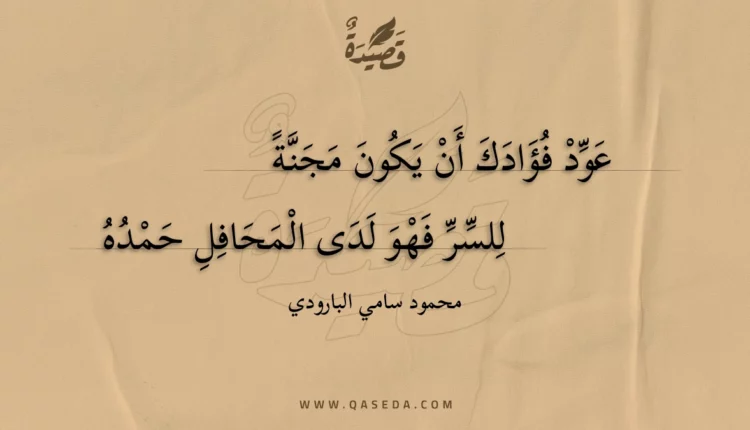 قَصِيدَةٌ
عَوِّدْ فُؤَادَكَ أَنْ يَكُونَ مَجَنَّةً
لِلسِّرِّ فَهْوَ لَدَى الْمَحَافِلِ حَمْدُهُ
محمود سامي البارودي
WWW.QASEDA.COM